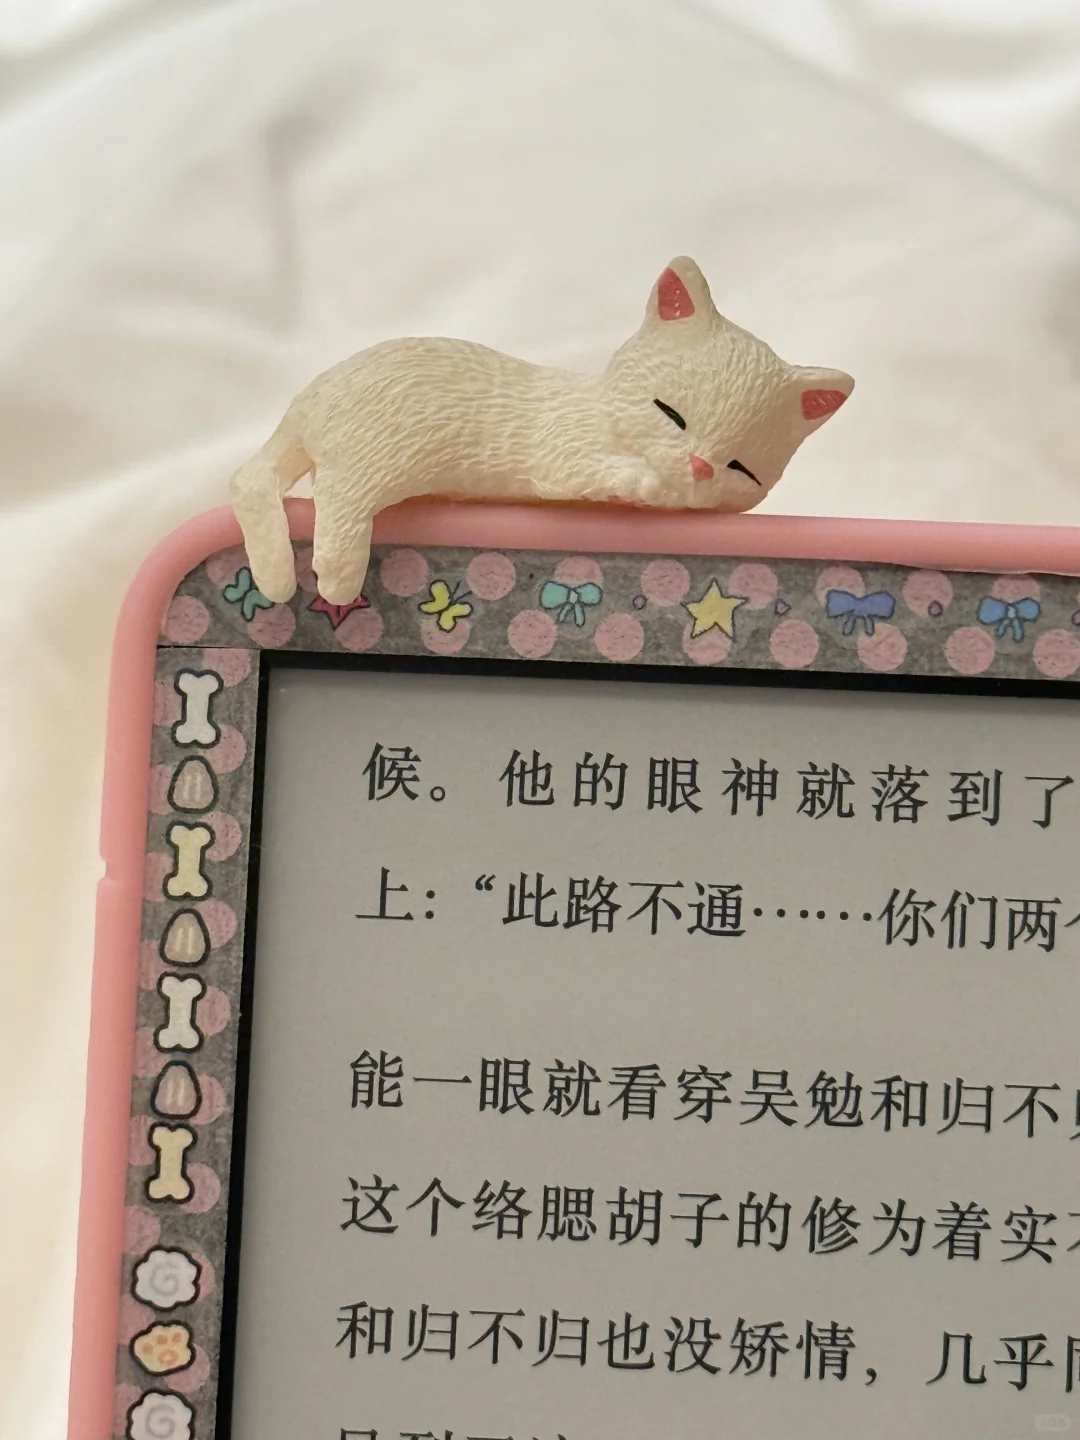 候。他的眼神就落到了
上：“此路不通……你们两
能一眼就看穿吴勉和归不
这个络腮胡子的修为着实
和归不归也没矫情，几乎